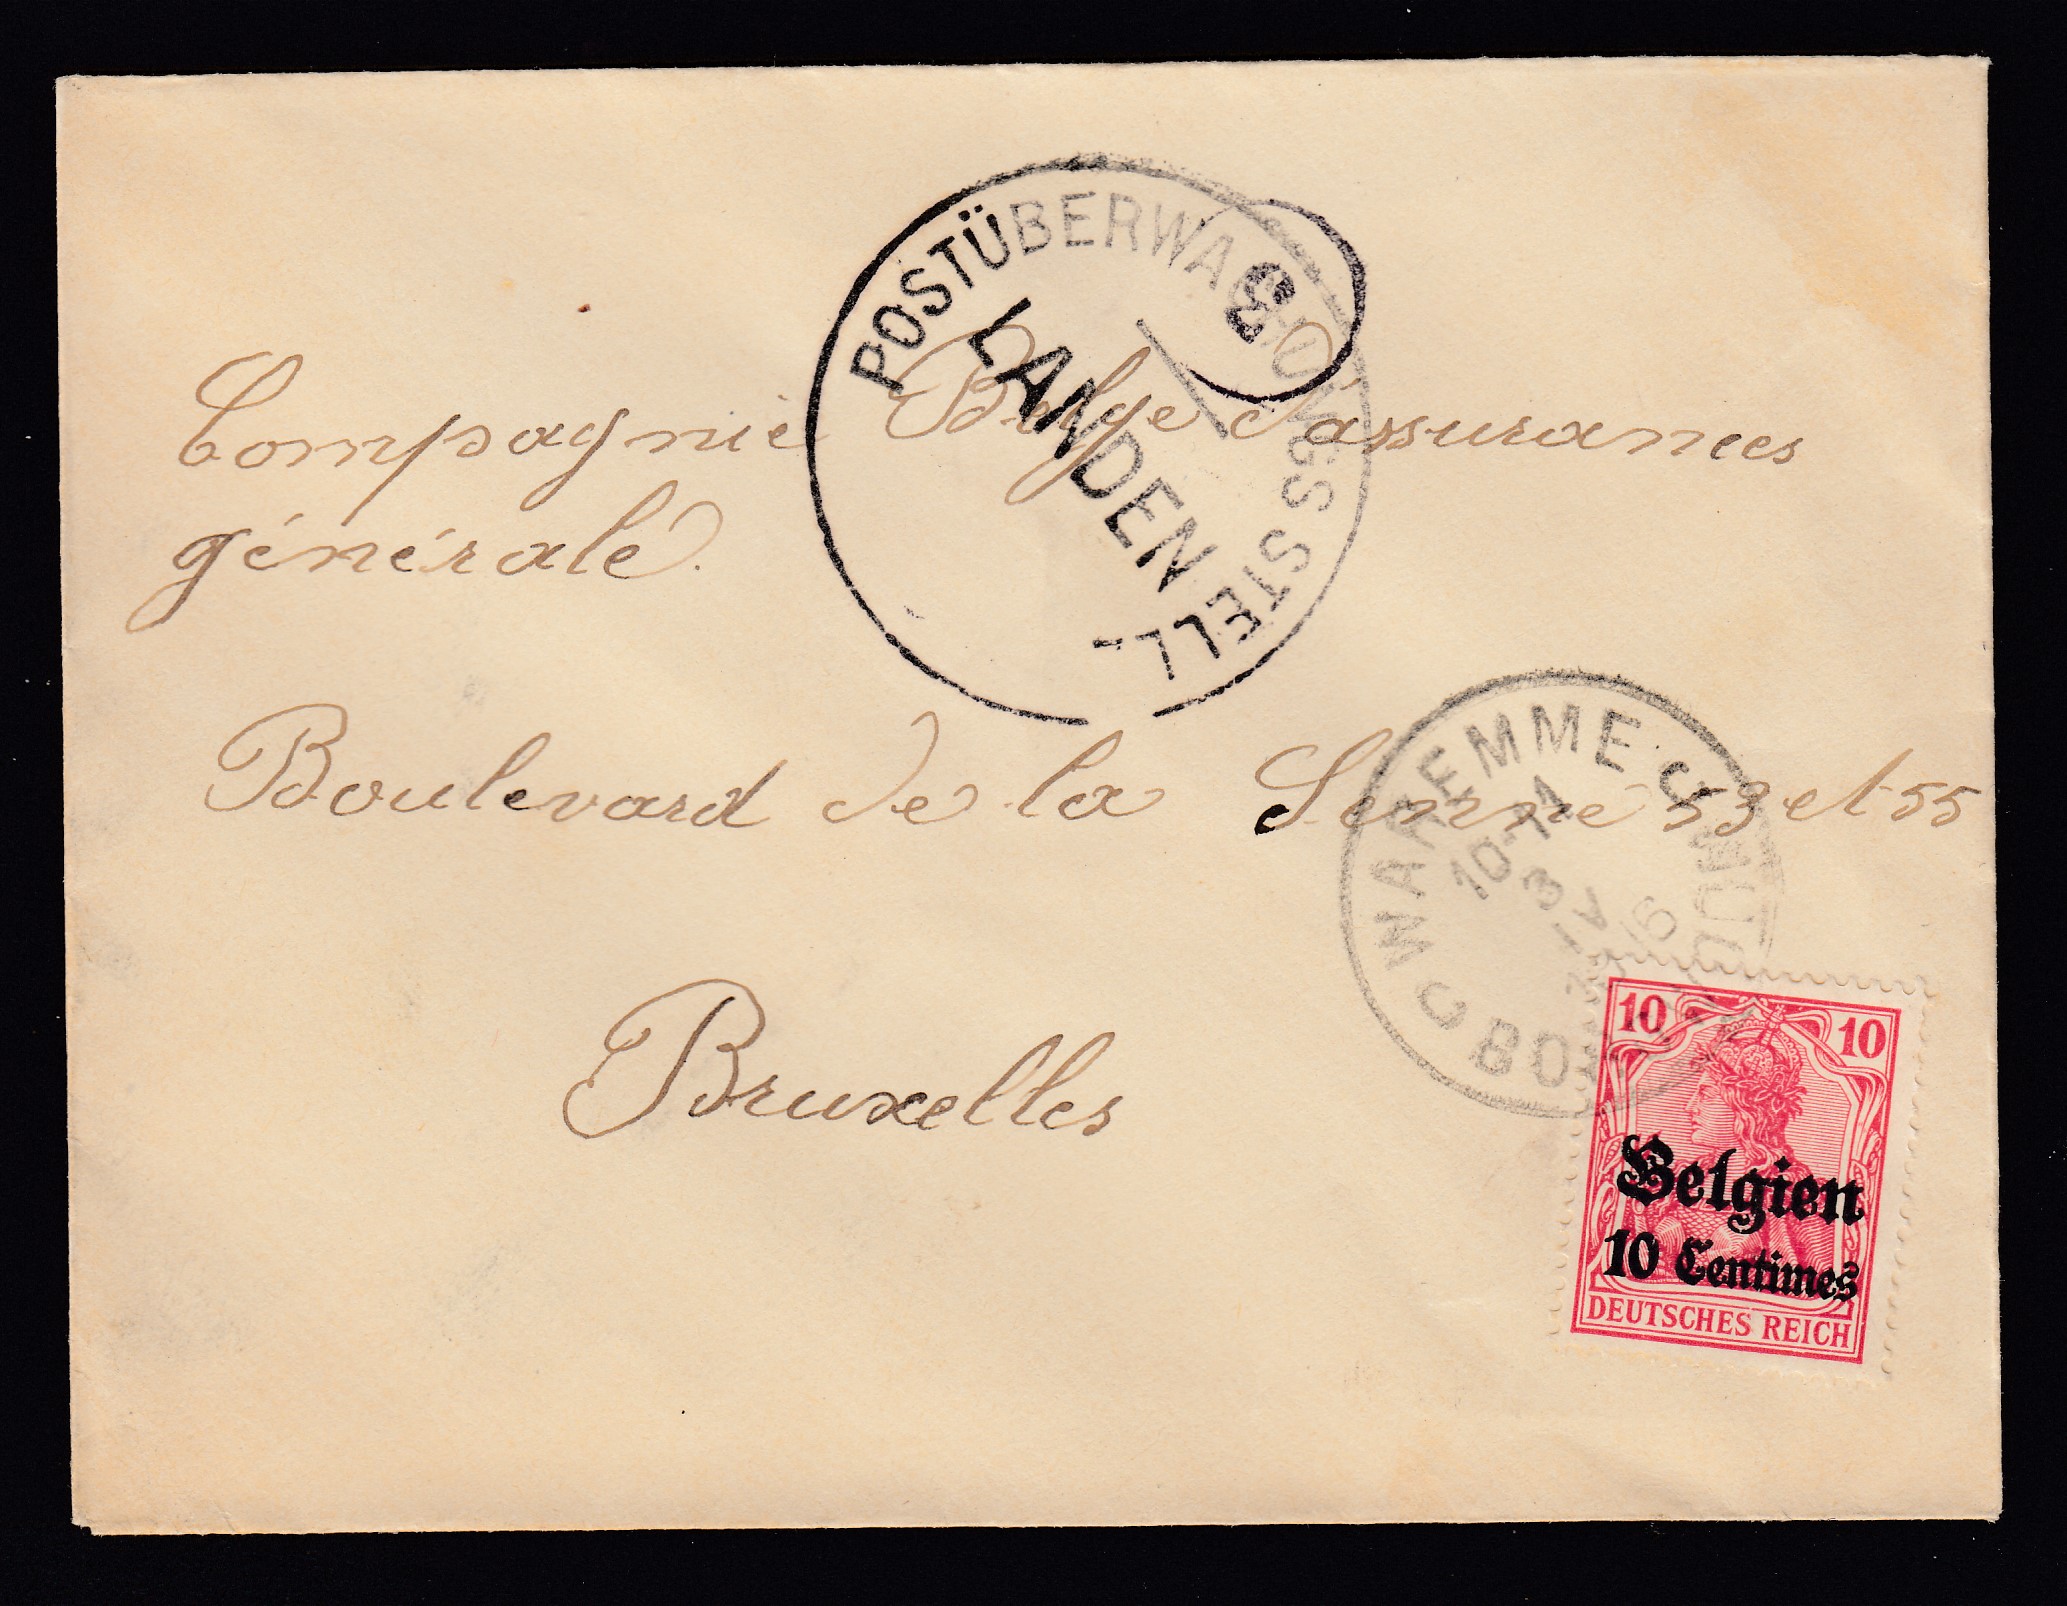 POSTÜBERWACHUNGSSTELLE
LANDEN
3
Compagnie Belge d'assurances
générale.
Boulevard de la Senne 53 et 55
Bruxelles
WAREMME
10-11
3 IV
16
10 10
Belgien
10 Centimes
DEUTSCHES REICH